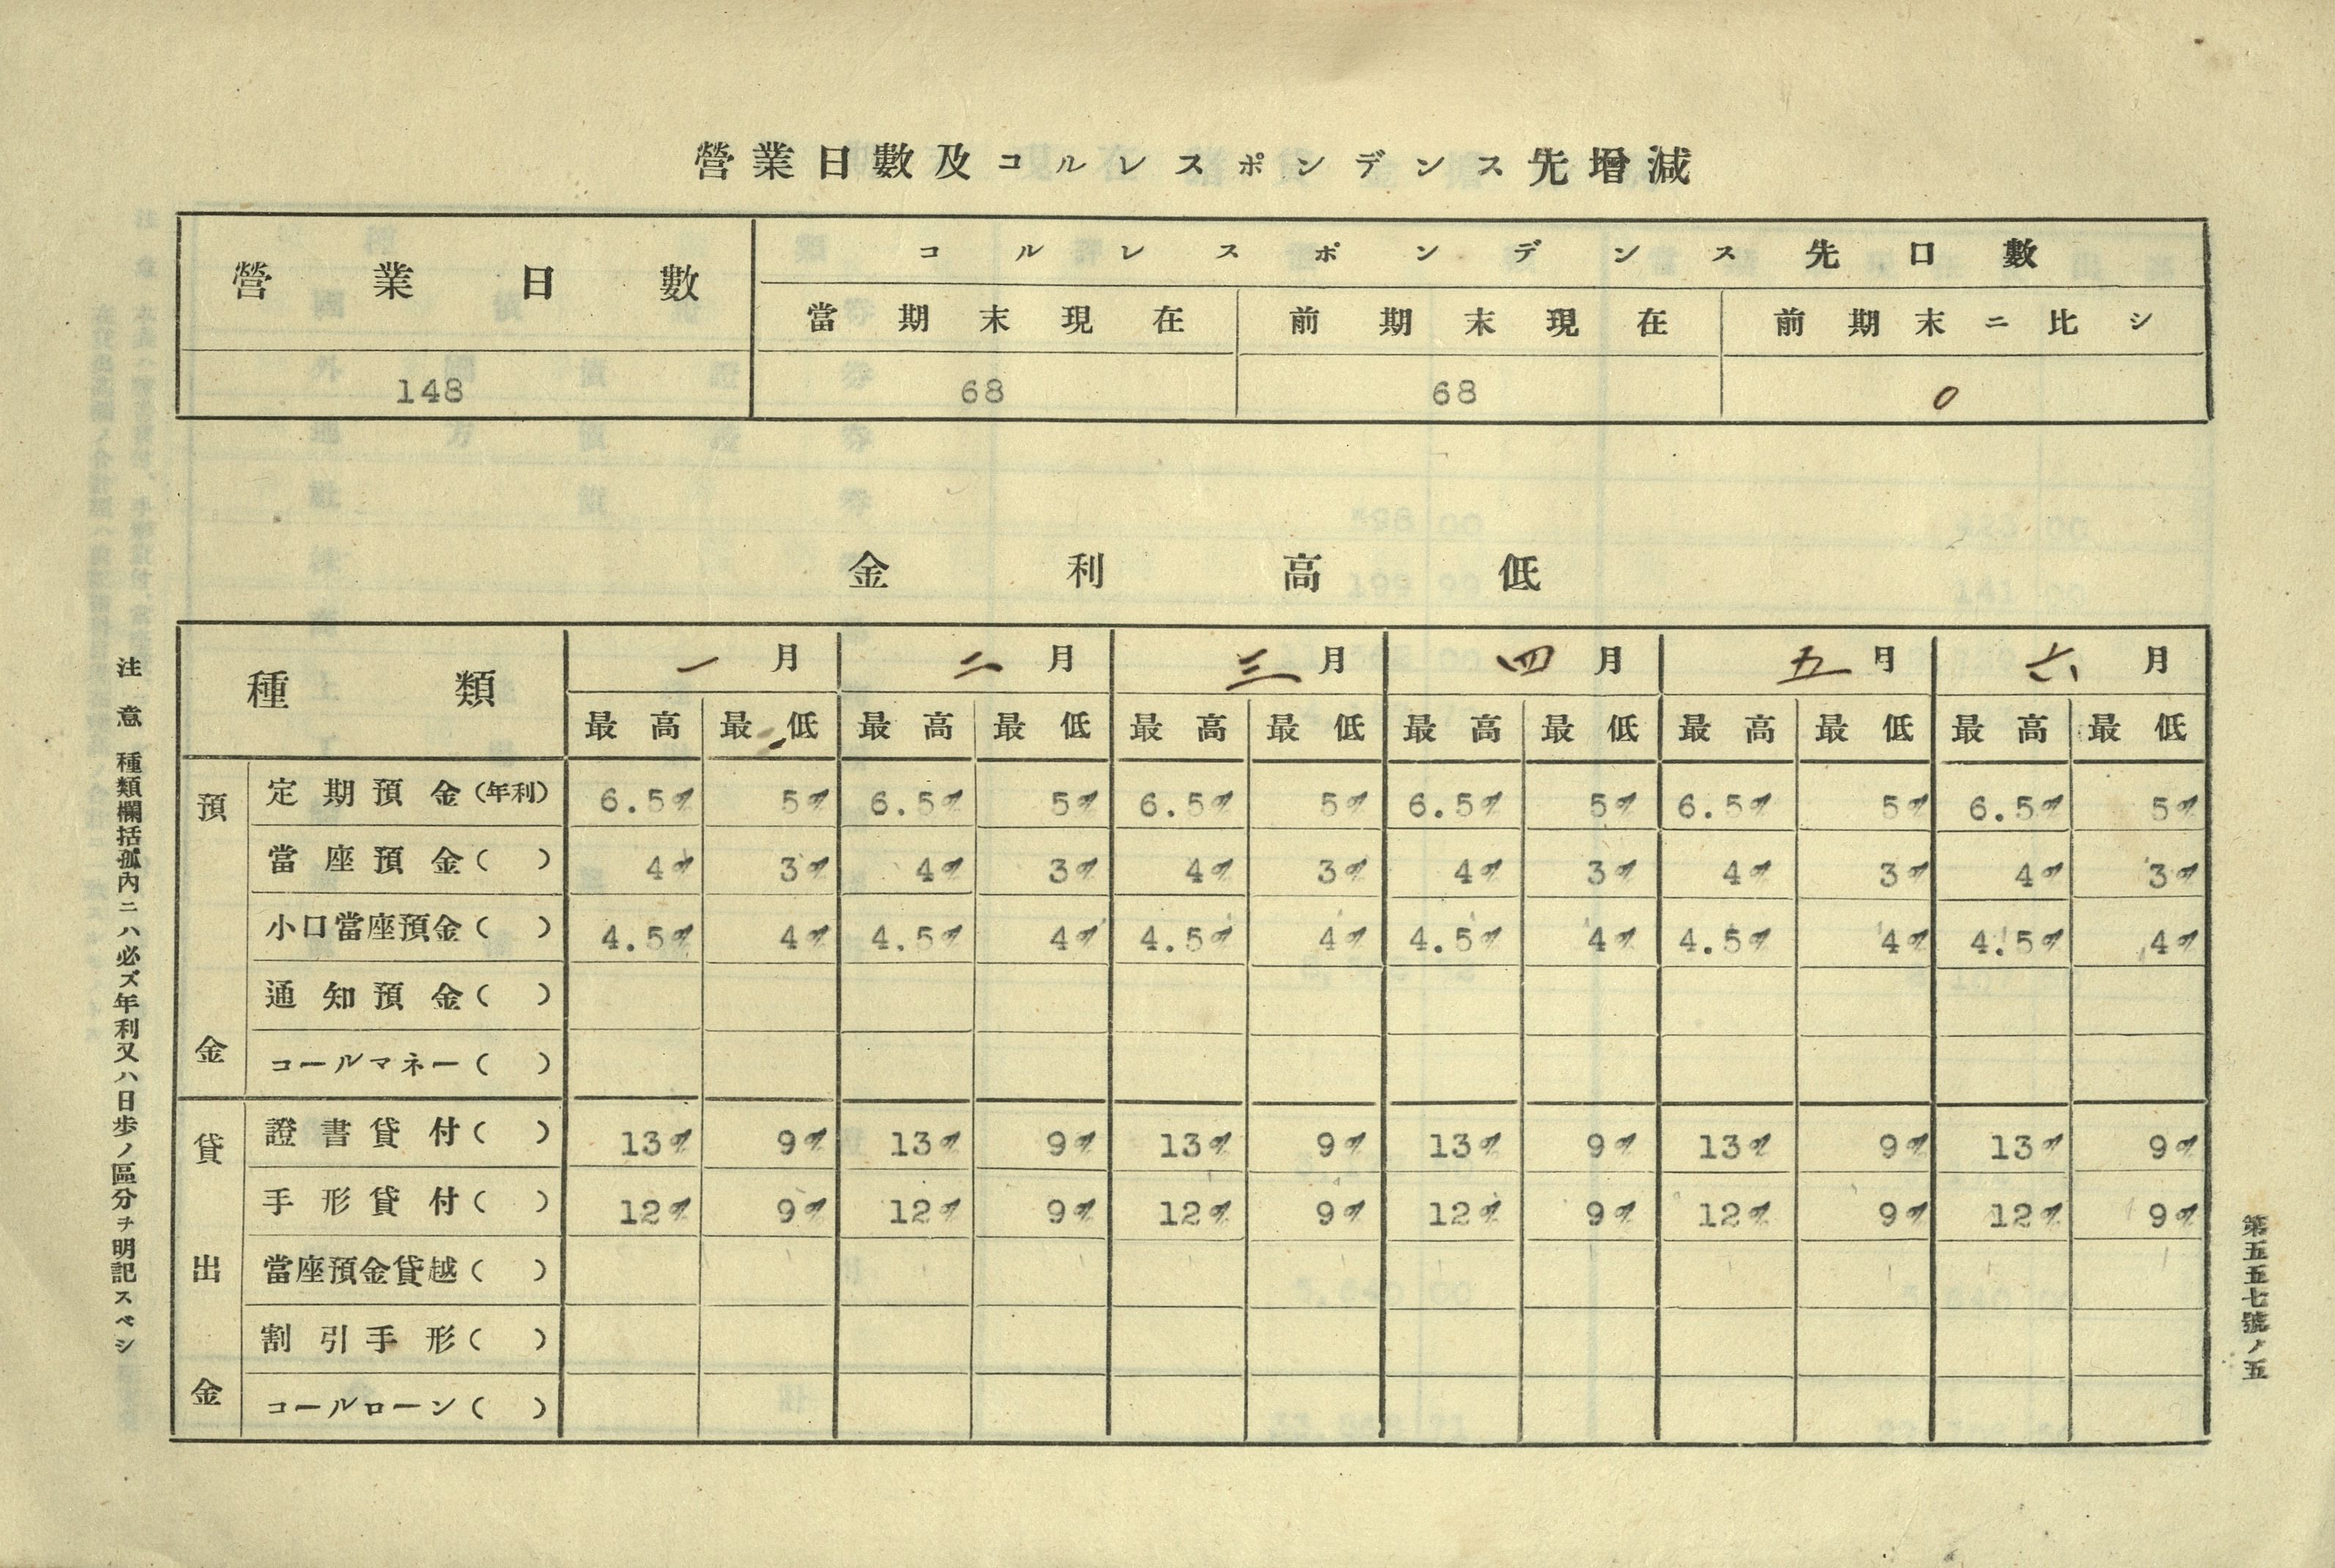 營業日數及コルレスポンデンス先增減
營業日數 コルレスポンデンス先口數
當期末現在 前期末現在 前期末ニ比シ
148 68 68 0
金利高低
種類 一月 二月 三月 四月 五月 六月
最高 最低 最高 最低 最高 最低 最高 最低 最高 最低 最高 最低
預金
定期預金(年利) 6.5% 5% 6.5% 5% 6.5% 5% 6.5% 5% 6.5% 5% 6.5% 5%
當座預金( ) 4% 3% 4% 3% 4% 3% 4% 3% 4% 3% 4% 3%
小口當座預金( ) 4.5% 4% 4.5% 4% 4.5% 4% 4.5% 4% 4.5% 4% 4.5% 4%
通知預金( )
コールマネー( )
貸出金
證書貸付( ) 13% 9% 13% 9% 13% 9% 13% 9% 13% 9% 13% 9%
手形貸付( ) 12% 9% 12% 9% 12% 9% 12% 9% 12% 9% 12% 9%
當座預金貸越( )
割引手形( )
コールローン( )
注意 種類欄括孤內ニハ必ズ年利又ハ日歩ノ區分ヲ明記スベシ
第五五七號ノ五